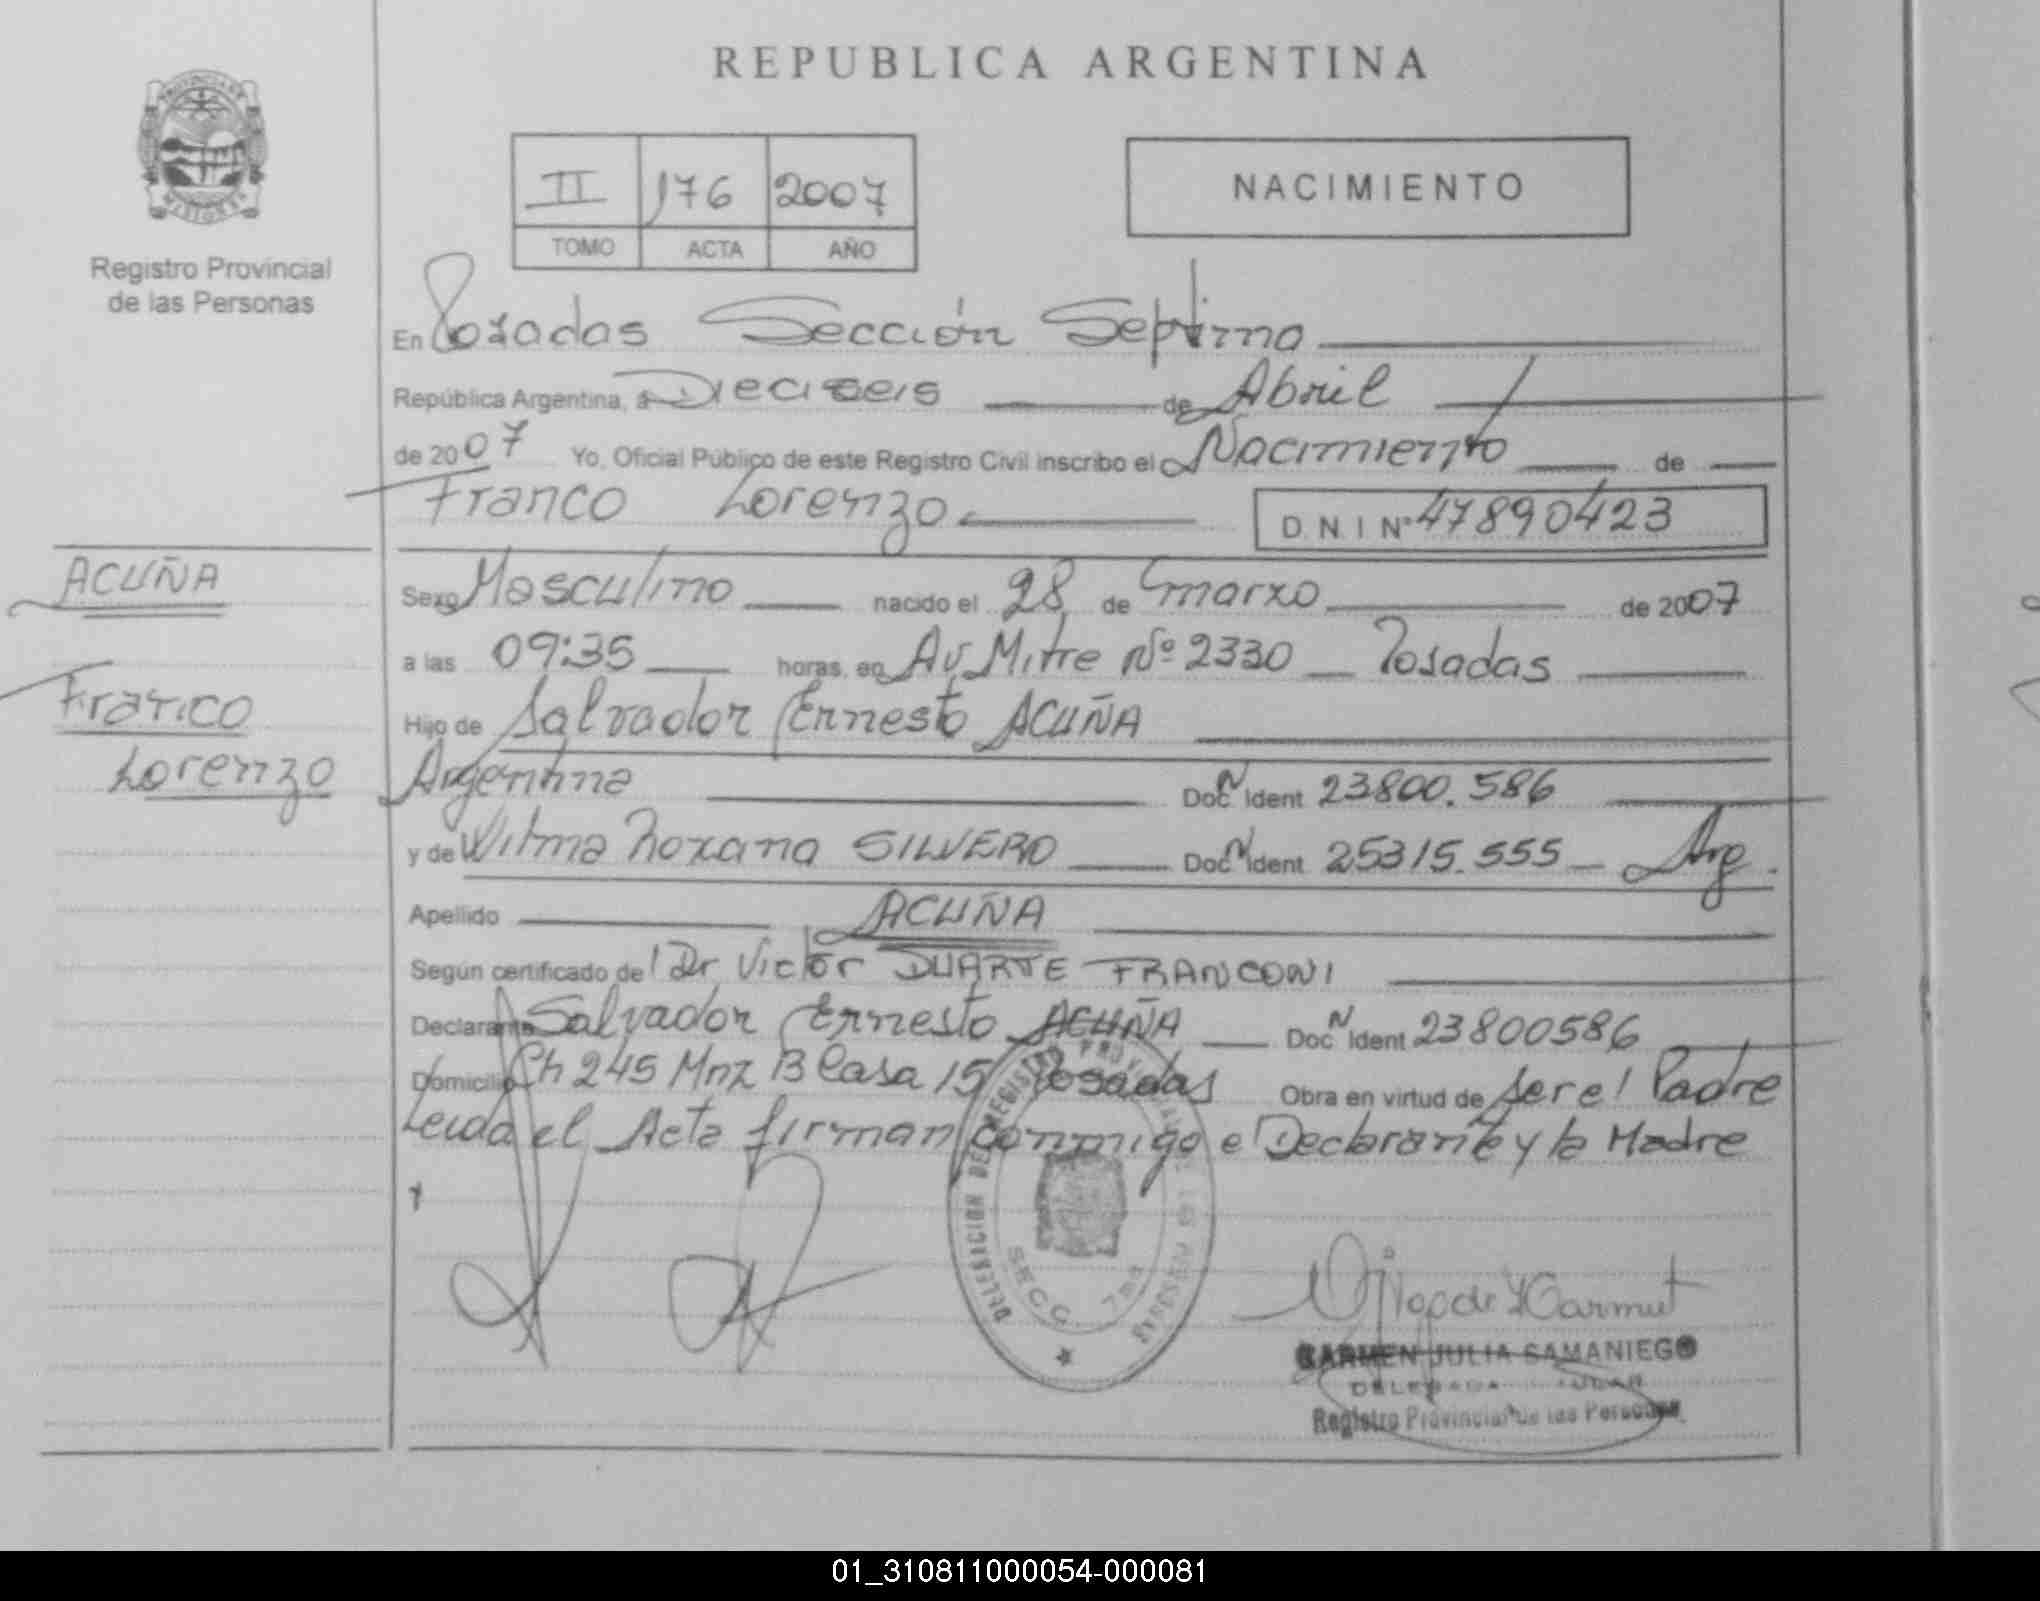 REPUBLICA ARGENTINA
PROVINCIA DE
MISIONES
Registro Provincial
de las Personas
II 176 2007
TOMO ACTA AÑO
NACIMIENTO
En Posadas Sección Septima
República Argentina, a Dieciseis de Abril
de 2007 Yo, Oficial Público de este Registro Civil inscribo el Nacimiento de
Franco Lorenzo D.N.I Nº 47890423
ACUÑA
Franco
Lorenzo
Sexo Masculino nacido el 28 de marzo de 2007
a las 09:35 horas, en Av. Mitre Nº 2330 Posadas
Hijo de Salvador Ernesto ACUÑA
Argentina Doc N Ident 23800.586
y de Wilma Roxana SILVERO Doc N Ident 25315.555 Arg.
Apellido ACUÑA
Según certificado del Dr Victor DUARTE FRANCONI
Declarante Salvador Ernesto ACUÑA Doc N Ident 23800586
Domicilio Ch 245 Mnz B Casa 15 Posadas Obra en virtud de ser el Padre
Leida el Acta firman conmigo el Declarante y la Madre
DELEGACION DEL REGISTRO PROVINCIAL DE LAS PERSONAS
SECC. 7ma
CARMEN JULIA SAMANIEGO
DELEGADA TITULAR
Registro Provincial de las Personas
01_310811000054-000081